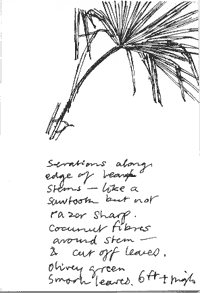 Serrations along
edge of
stems – like a
sawtooth but not
razor sharp.
Coconut fibres
around stem –
& cut off leaves.
Olivey green
Smooth leaves. 6ft + high